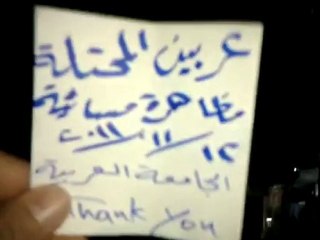 عربين المحتلة
مظاهرة مسائية
١٢/١١/٢٠١١
الجامعة العربية
Thank You